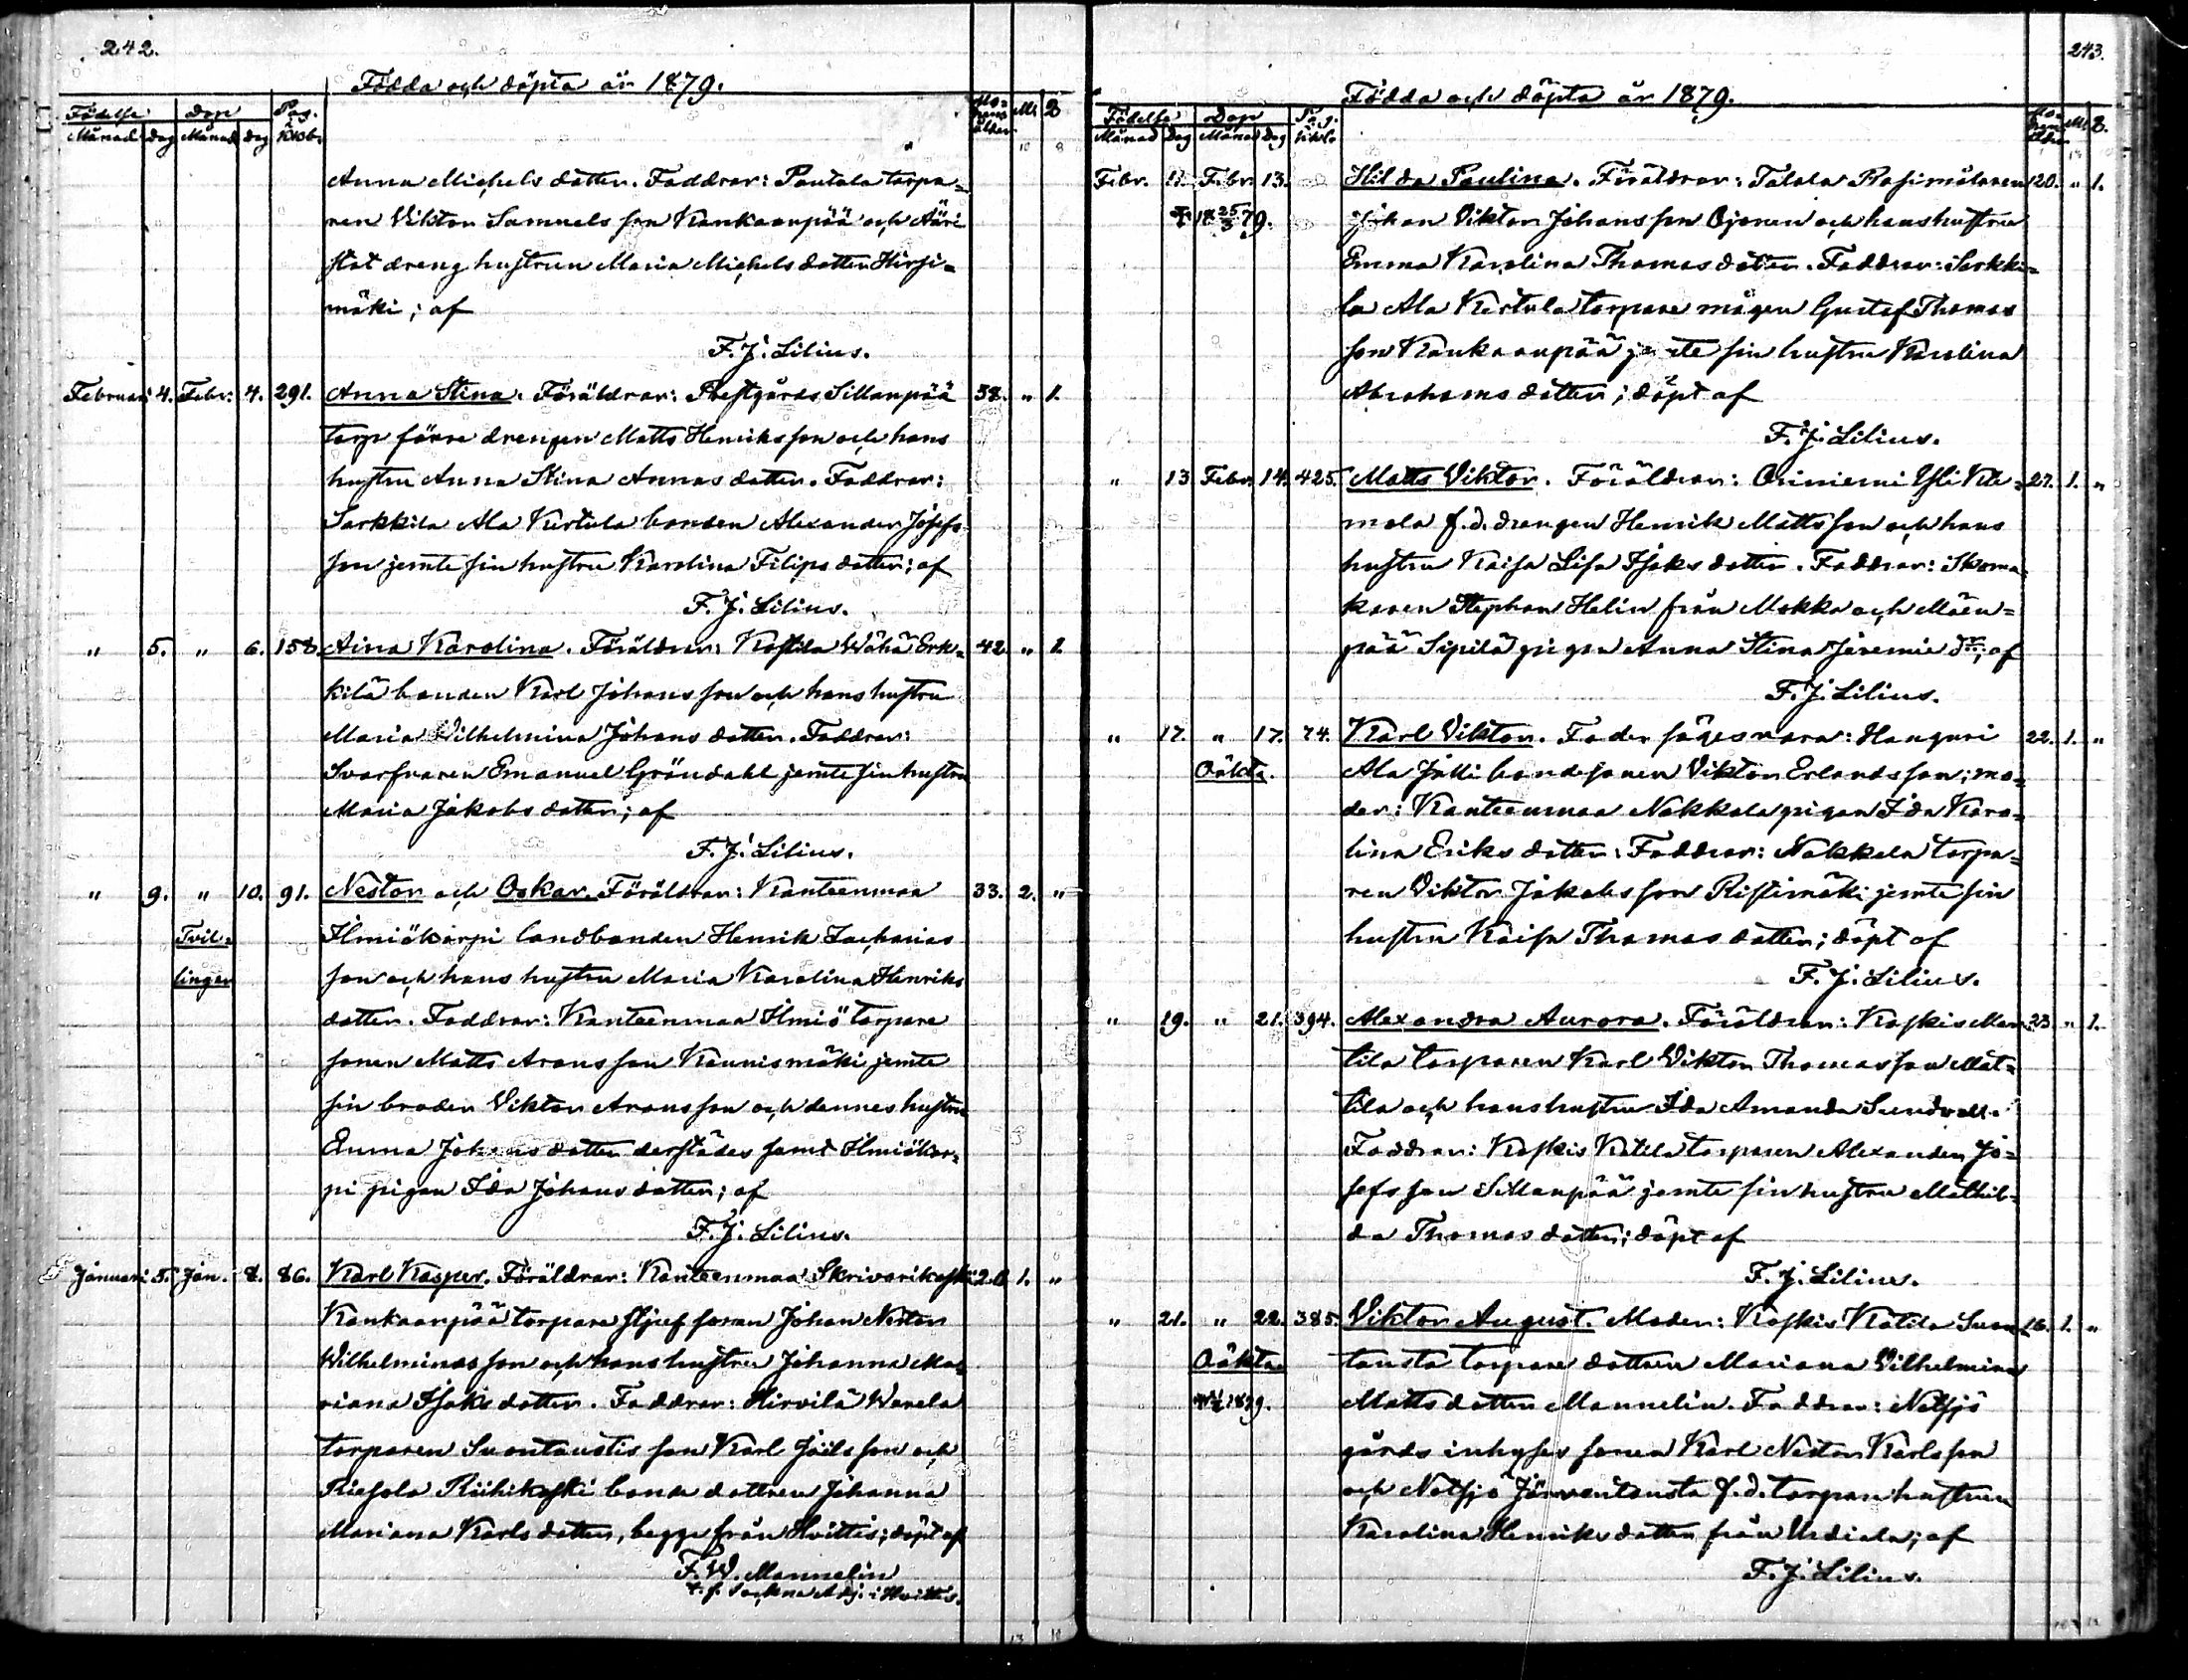 242.
Födda och döpta år 1879.
Födelse Dop Pag. i Kkob. Modrens ålder M. Q.
Månad Dag Månad Dag
Anna Michels dotter. Faddrar: Pautola torpa=
ren Viktor Samuels son Kankaanpää och Ääri
statdreng hustrun Maria Michels dotter Hirsi=
mäki; af
F. J. Lilius.
Februari 4. Febr: 4. 291. Anna Stina. Föräldrar: Prestgårds Sillanpää 38. " 1.
torp förre drengen Matts Henriksson och hans
hustru Anna Stina Annas dotter. Faddrar:
Sarkkila Ala Kertula bonden Alexander Josefs
son jemte sin hustru Karolina Filips dotter; af
F. J. Lilius.
" 5. " 6. 158. Aina Karolina. Föräldrar: Kostila Wähä Erk= 42 " 1.
kilä bonden Karl Johansson och hans hustru
Maria Wilhelmina Johans dotter. Faddrar:
Svarfvaren Emanuel Gröndahl jemte sin hustru
Maria Jakobs dotter; af
F. J. Lilius.
" 9. " 10. 91. Nestor och Oskar. Föräldrar: Kanteenmaa 33. 2. "
Tvil= Ilmiökorpi landbonden Henrik Zacharias
lingar son och hans hustru Maria Karolina Henriks
dotter. Faddrar: Kanteenmaa Ilmiö torpare
sonen Matts Aronsson Kaunismäki jemte
sin broder Viktor Aronsson och dennes hustru
Emma Johans dotter derstädes samt Ilmiökor=
pi pigan Ida Johans dotter; af
F. J. Lilius.
Januari 5. Jan. 8. 86. Karl Kasper. Föräldrar: Kanteenmaa Skrivarikoski 20 1. "
Kankaanpää torpare styfsonen Johan Nestor
Wilhelminas son och hans hustru Johanna Ma=
riana Isaks dotter. Faddrar: Hirvilä Warela
torparen Suontaustis son Karl Joels son och
Riesola Riihikoski bonde dottren Johanna
Mariana Karls dotter, begge från Hvittis; döpt af
F. W. Mannelin
t. f. Sockne Adj. i Hvittis.
243.
Födda och döpta år 1879.
Födelse Dop Pag. i Kkob. Modrens ålder M. Q.
Månad Dag Månad Dag
Febr. 12 Febr. 13. Hilda Paulina. Föräldrar: Talala Rasimälaren 20. " 1.
† 18 25/3 79. Johan Viktor Johansson Ojonen och hans hustru
Emma Karolina Thomas dotter. Faddrar: Sarkki=
la Ala Kertula torpare mågen Gustaf Thomas
son Kankaanpää jemte sin hustru Karolina
Abrahams dotter; döpt af
F. J. Lilius.
" 13 Febr. 14. 425. Matts Viktor. Föräldrar: Oriniemi Yli Kle= 27. 1. "
mola f.d. drengen Henrik Mattsson och hans
hustru Kaisa Lisa Isaks dotter. Faddrar: Skoma=
karen Stephan Helin från Mokka och Mäen=
pää Sipilä pigan Anna Stina Jeremie dr; af
F. J. Lilius.
" 17. " 17. 74. Karl Viktor. Fader säges vara: Hanguri 22. 1. "
Oäkta. Ala Jalli bondesonen Viktor Erlandsson; mo=
der: Kanteenmaa Nokkala pigan Ida Karo=
lina Eriks dotter. Faddrar: Nokkala torpa=
ren Viktor Jakobsson Ristimäki jemte sin
hustru Kaisa Thomas dotter; döpt af
F. J. Lilius.
" 19. " 21. 394. Alexandra Aurora. Föräldrar: Koskis Mar 23 " 1.
tila torparen Karl Viktor Thomasson Mat=
tila och hans hustru Ida Amanda Sundvall.
Faddrar: Koskis Katila torparen Alexander Jo=
sefsson Sillanpää jemte sin hustru Mathil=
da Thomas dotter; döpt af
F. J. Lilius.
" 21. " 22. 385. Viktor August. Moder: Koskis Katila Suon 16. 1. "
Oäkta tausta torpare dottren Mariana Vilhelmina
1879. Matts dotter Mannelin. Faddrar: Notsjö
gårds inhyses sonen Karl Nestor Karlsson
och Notsjö Järventausta f.d. torpare hustrun
Karolina Henriks dotter från Urdiala; af
F. J. Lilius.